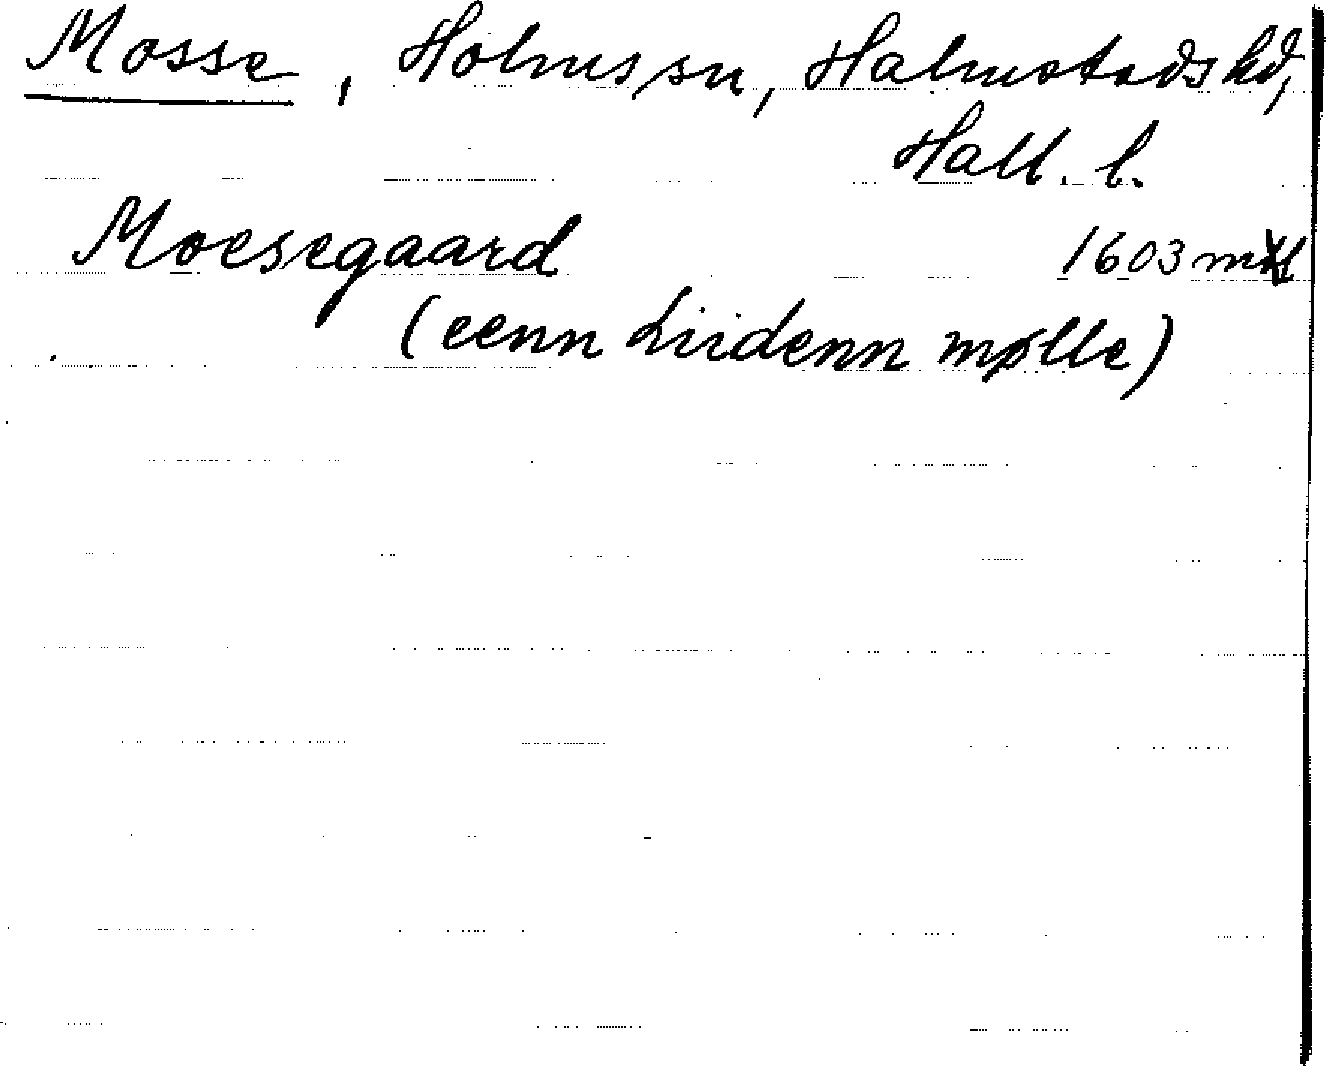 Mosse, Holms sn, Halmstads hd,
Hall. l.
Moesegaard 1603
(eenn liidenn mølle)